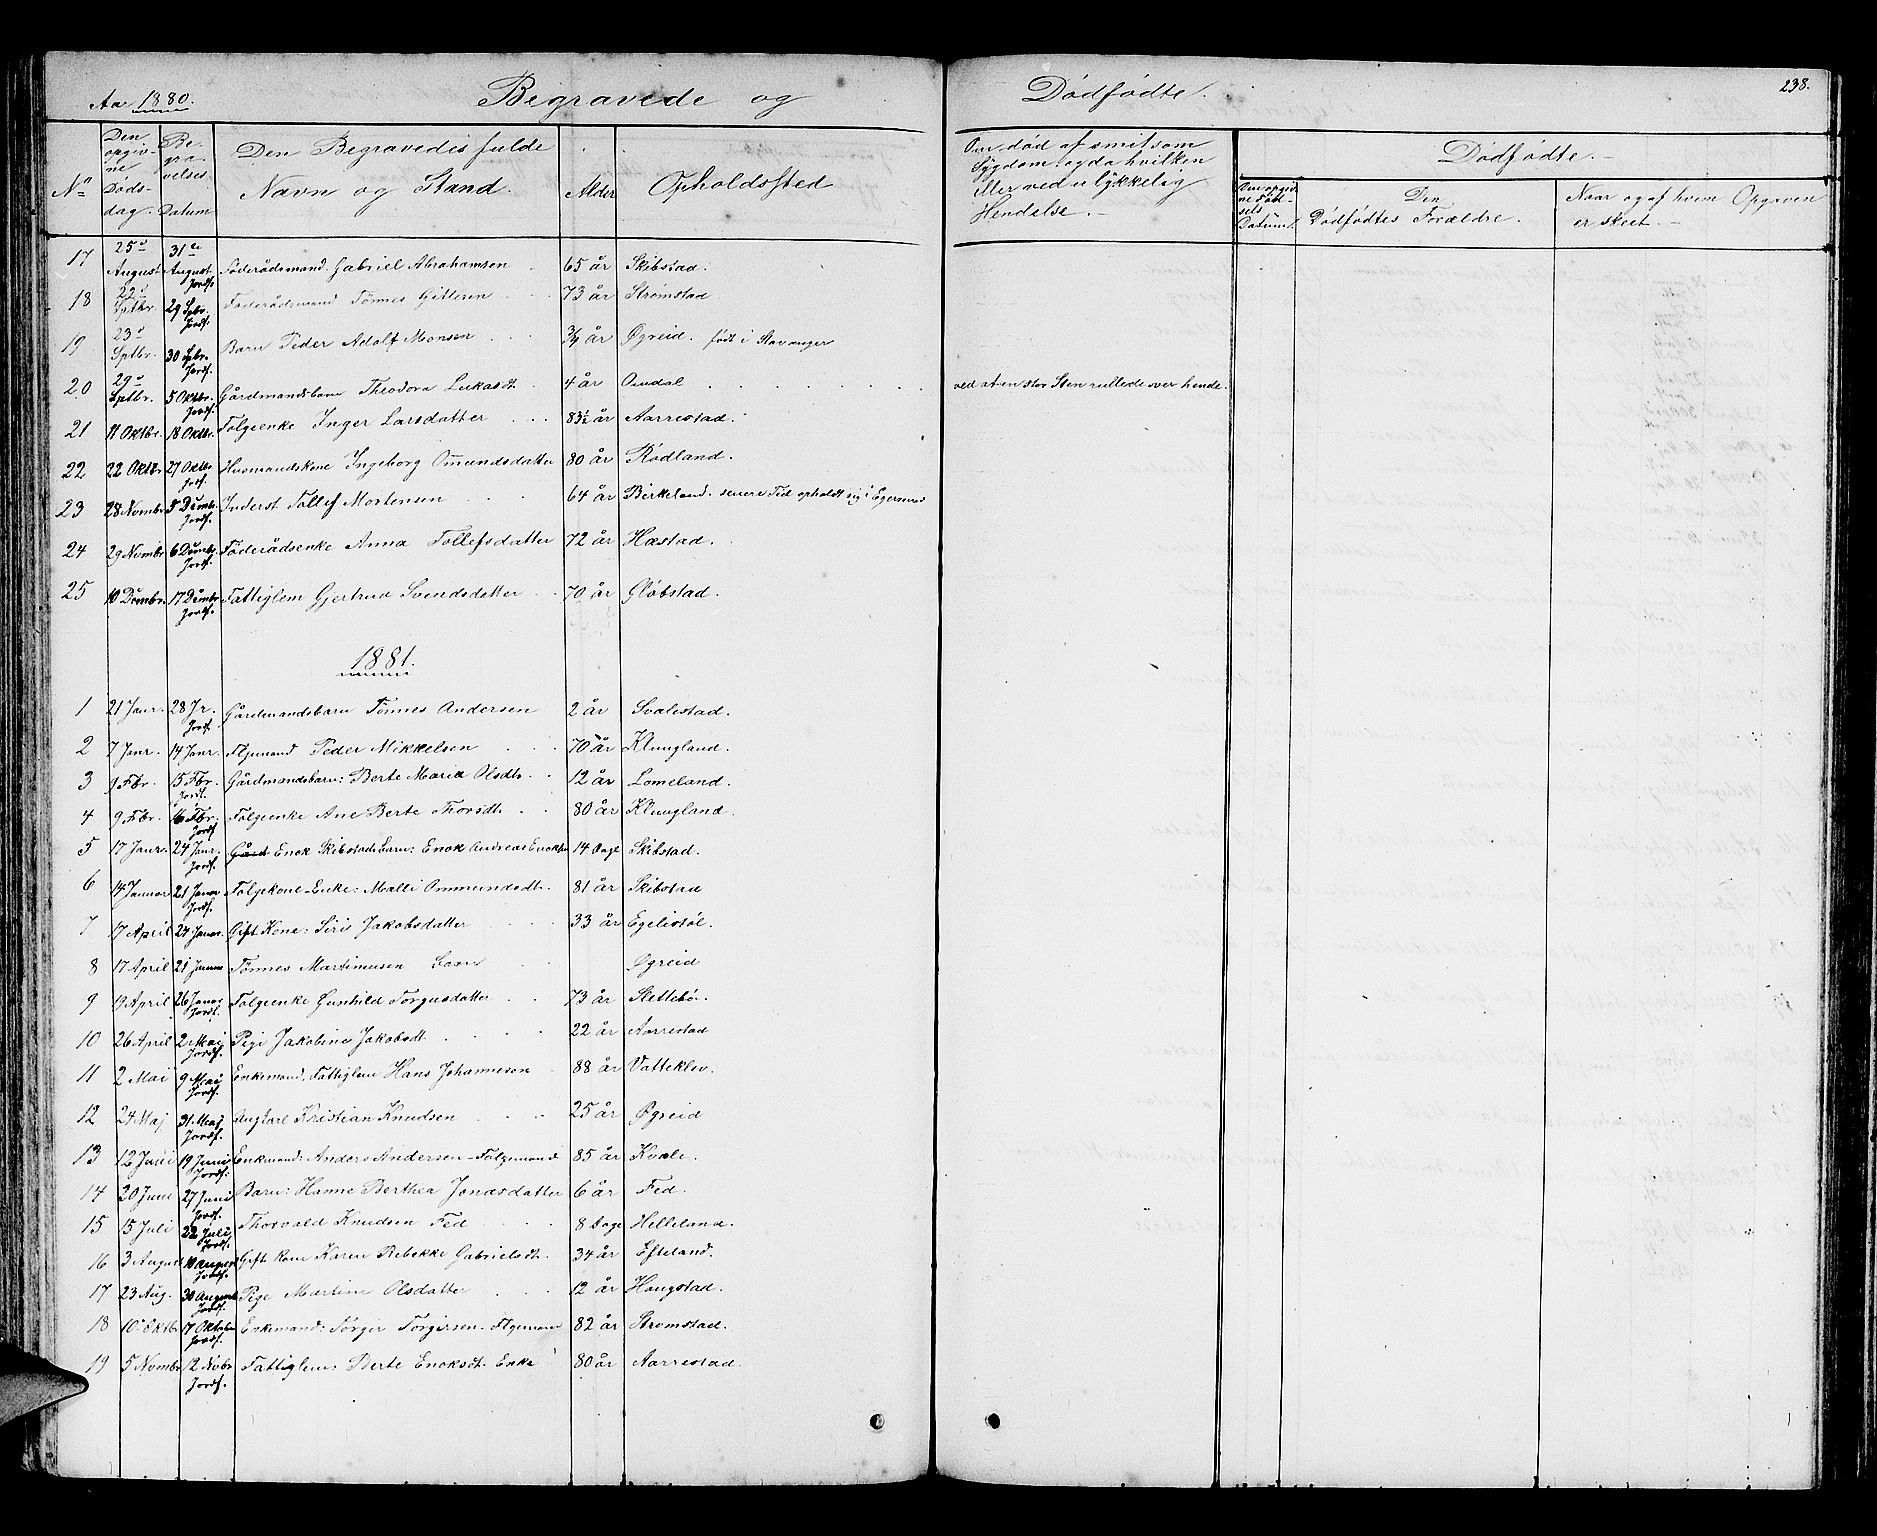 Aar 1880. Begravede og Dødfødte. 238.
No
Den opgivne Dødsdag.
Begravelses Datum
Den Begravedes fulde Navn og Stand.
Alder
Opholdssted
Om død af smitsom Sygdom og da hvilken eller ved ulykkelig Hendelse. —
Dødfødte. —
Den opgivne Fødselsdatum.
Den Dødfødtes Forældre.
Naar og af hvem Opgaven er skeet. —
17 25de August 31te August Jordf. Føderådsmand Gabriel Abrahamsen 65 år Skibstad.
18 22de Sptbr. 29 Spbr. Jordf. Føderådsmand Tönnes Gittesen 73 år Strömstad
19 23de Sptbr. 30 Spbr. Jordf. Barn Peder Adolf Monsen ¾ år Øgreid. født i Stavanger
20 29de Sptbr. 5 Oktbr. Jordf. Gårdmandsbarn Theodora Lukasdt. 4 år Omdal . . . ved at en stor Sten rullede over hende.
21 11 Oktbr. 18 Oktbr. Folgeenke Inger Larsdatter 83½ år Aarrestad.
22 22 Oktbr 27 Oktbr Jordf. Husmandskone Ingeborg Omundsdatter 80 år Rödland.
23 28 Novmbr 5 Dcmbr. Jordf. Inderst Tollef Mortensen 64 år Birkeland. senere Tid opholdt sig i Egersund
24 29 Novmbr 6 Dcmbr. Jordf. Føderådsenke Anna Tollefsdatter 72 år Hæstad.
25 10 Dcmbr. 17 Dcmbr Jordf. Fattiglem Gjertrud Svendsdatter 70 år Gløbstad.
1881.
1 21 Janr. 28 Jr. Jordf. Gårdmandsbarn Tönnes Andersen 2 år Svalestad.
2 7 Janr. 14 Janr. Flgemand Peder Mikkelsen 70 år Klungland.
3 9 Fbr. 15 Fbr. Jordf. Gårdmandsbarn: Berte Maria Olsdtr. 12 år Lomeland.
4 9 Fbr. 16 Fbr. Jordf Folgeenke Ane Berte Thorsdt. 80 år Klungland.
5 17 Janr. 24 Janr. Jordf. Gård Enok Skibstads Barn: Enok Andreas Enoksen 14 Dage Skibstad.
6 14 Januar 21 Janar Jordf. Folgekone-Enke: Malli Ommundsdt. 81 år Skibstad
7 17 April 24 Janar. Gift Kone: Siri Jakobsdatter 33 år Egelistöl.
8 17 April 21 Januar Tönnes Martinusen Barn Øgreid
9 19 April 26 Janar Jordf. Folgeenke Gunhild Torgusdatter 73 år Slettebö.
10 26 April 2 Mai Jordf. Pige Jakobine Jakobsdt. 22 år Aarrestad
11 2 Mai 9 Mai Jordf. Enkemand, Fattiglem Hans Johannesen 88 år Vatteklev.
12 24 Maj 31 Maj Jordf. Ungkarl Kristian Knudsen 25 år Øgreid
13 12 Juni 19 Juni Jordf. Enkemand: Anders Andersen - Folgemand 85 år Kvale.
14 20 Juni 27 Juni Jordf. Barn: Hanne Berthea Jonasdatter 6 år Fed.
15 15 Juli 22 Juli Jordf. Thorvald Knudsen Fed 8 Dage Helleland.
16 3 August 10 August Jordf. Gift kone Karen Rebekke Gabrielsdt. 34 år Efteland.
17 23 Aug. 30 August Jordf. Pige Martine Olsdatter 12 år Haugstad.
18 10 Oktbr 17 Oktober Jordf. Enkemand: Törgir Törgirsen - Flgemand 82 år Strömstad.
19 5 Novmbr 12 Nvbr Jordf. Fattiglem: Berte Enoksdt. Enke 80 år Aarrestad.